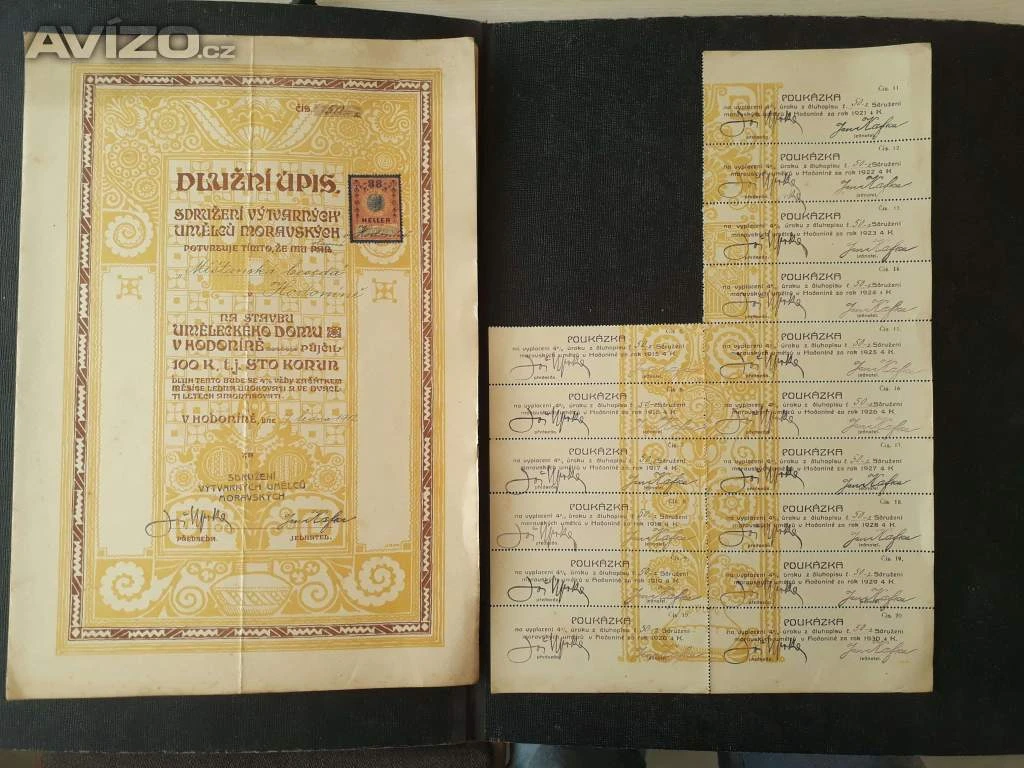 AVÍZO.cz
čís. 50
DLUŽNÍ ÚPIS.
88
HELLER
SDRUŽENÍ VÝTVARNÝCH
UMĚLCŮ MORAVSKÝCH
POTVRZUJE TÍMTO, ŽE MU PAN
Měšťanská beseda
Hodoníně
NA STAVBU
UMĚLECKÉHO DOMU
V HODONÍNĚ PŮJČIL
100 K, t.j. STO KORUN
DLUH TENTO BUDE SE 4% VŽDY ZAČÁTKEM
MĚSÍCE LEDNA ÚROKOVATI A VE DVACE-
TI LETECH AMORTISOVATI.
V HODONÍNĚ, dne
ZA
SDRUŽENÍ
VÝTVARNÝCH UMĚLCŮ
MORAVSKÝCH
PŘEDSEDA. JEDNATEL.
Čís. 11.
POUKÁZKA
na vyplacení 4% úroku z dluhopisu č. 50 Sdružení
moravských umělců v Hodoníně za rok 1921 4 K.
předseda. jednatel.
Čís. 12.
POUKÁZKA
na vyplacení 4% úroku z dluhopisu č. 50 Sdružení
moravských umělců v Hodoníně za rok 1922 4 K.
předseda. jednatel.
Čís. 13.
POUKÁZKA
na vyplacení 4% úroku z dluhopisu č. 50 Sdružení
moravských umělců v Hodoníně za rok 1923 4 K.
předseda. jednatel.
Čís. 14.
POUKÁZKA
na vyplacení 4% úroku z dluhopisu č. 50 Sdružení
moravských umělců v Hodoníně za rok 1924 4 K.
předseda. jednatel.
POUKÁZKA
na vyplacení 4% úroku z dluhopisu č. 50 Sdružení
moravských umělců v Hodoníně za rok 1915 4 K.
předseda. jednatel.
Čís. 15.
POUKÁZKA
na vyplacení 4% úroku z dluhopisu č. 50 Sdružení
moravských umělců v Hodoníně za rok 1925 4 K.
předseda. jednatel.
Čís. 6.
POUKÁZKA
na vyplacení 4% úroku z dluhopisu č. 50 Sdružení
moravských umělců v Hodoníně za rok 1916 4 K.
předseda. jednatel.
Čís. 16.
POUKÁZKA
na vyplacení 4% úroku z dluhopisu č. 50 Sdružení
moravských umělců v Hodoníně za rok 1926 4 K.
předseda. jednatel.
POUKÁZKA
na vyplacení 4% úroku z dluhopisu č. 50 Sdružení
moravských umělců v Hodoníně za rok 1917 4 K.
předseda. jednatel.
Čís. 17.
POUKÁZKA
na vyplacení 4% úroku z dluhopisu č. 50 Sdružení
moravských umělců v Hodoníně za rok 1927 4 K.
předseda. jednatel.
POUKÁZKA
na vyplacení 4% úroku z dluhopisu č. 50 Sdružení
moravských umělců v Hodoníně za rok 1918 4 K.
předseda. jednatel.
Čís. 18.
POUKÁZKA
na vyplacení 4% úroku z dluhopisu č. 50 Sdružení
moravských umělců v Hodoníně za rok 1928 4 K.
předseda. jednatel.
POUKÁZKA
na vyplacení 4% úroku z dluhopisu č. 50 Sdružení
moravských umělců v Hodoníně za rok 1919 4 K.
předseda. jednatel.
Čís. 19.
POUKÁZKA
na vyplacení 4% úroku z dluhopisu č. 50 Sdružení
moravských umělců v Hodoníně za rok 1929 4 K.
předseda. jednatel.
Čís. 10.
POUKÁZKA
na vyplacení 4% úroku z dluhopisu č. 50 Sdružení
moravských umělců v Hodoníně za rok 1920 4 K.
předseda.
Čís. 20.
POUKÁZKA
na vyplacení 4% úroku z dluhopisu č. 50 Sdružení
moravských umělců v Hodoníně za rok 1930 4 K.
předseda. jednatel.